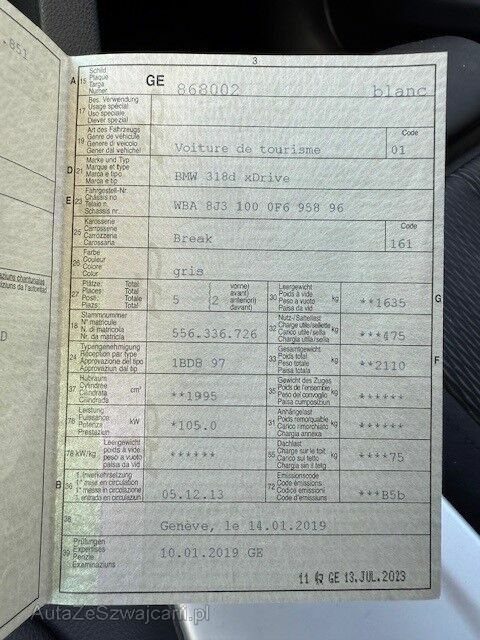 .851
3
A 15 Schild Plaque Targa Numer GE 868002 blanc
17 Bes. Verwendung
Usage spécial
Uso speciale
Diever spezial
19 Art des Fahrzeugs
Genre de véhicule
Genere di veicolo
Gener dal vehichel
Voiture de tourisme
Code
01
D 21 Marke und Typ
Marque et type
Marca e tipo
Marca e tip
BMW 318d xDrive
E 23 Fahrgestell-Nr
Châssis no
Telaio n.
Schassis nr
WBA 8J3 100 0F6 958 96
25 Karosserie
Carrosserie
Carrozzeria
Carossaria
Break
Code
161
26 Farbe
Couleur
Colore
Color
gris
27 Plätze: Total
Places: Total
Posti: Totale
Plazs: Total
5 (2
vorne)
avant)
anteriori)
davant)
G 30 Leergewicht
Poids à vide
Peso a vuoto
Paisa da vid
kg
**1635
18 Stammnummer
N° matricule
N. di matricola
Nr. da matricla
556.336.726
32 Nutz-/Sattellast
Charge utile/sellette
Carico utile/sella
Chargia utila/sella
kg
***475
24 Typengenehmigung
Réception par type
Approvazione del tipo
Approvaziun dal tip
1BDB 97
F 33 Gesamtgewicht
Poids total
Peso totale
Paisa totala
kg
**2110
37 Hubraum
Cylindrée
Cilindrata
Cilindrada
cm³
**1995
35 Gewicht des Zuges
Poids de l'ensemble
Peso del convoglio
Paisa cumposiziun
kg
******
76 Leistung
Puissance
Potenza
Prestaziun
kW
*105.0
31 Anhängelast
Poids remorquable
Carico rimorchiato
Chargia annexa
kg
******
78 kW/kg Leergewicht
poids à vide
peso a vuoto
paisa da vid
******
55 Dachlast
Charge sur le toit
Carico sul tetto
Chargia sin il tetg
kg
****75
B 36 1. Inverkehrsetzung
1re mise en circulation
1a messa in circolazione
1. entrada en circulaziun
05.12.13
72 Emissionscode
Code émissions
Codice emissioni
Code d'emissiuns
***B5b
38
Genève, le 14.01.2019
39 Prüfungen
Expertises
Perizie
Examinaziuns
10.01.2019 GE
GE 13.JUL.2023
AutaZeSzwajcarii.pl